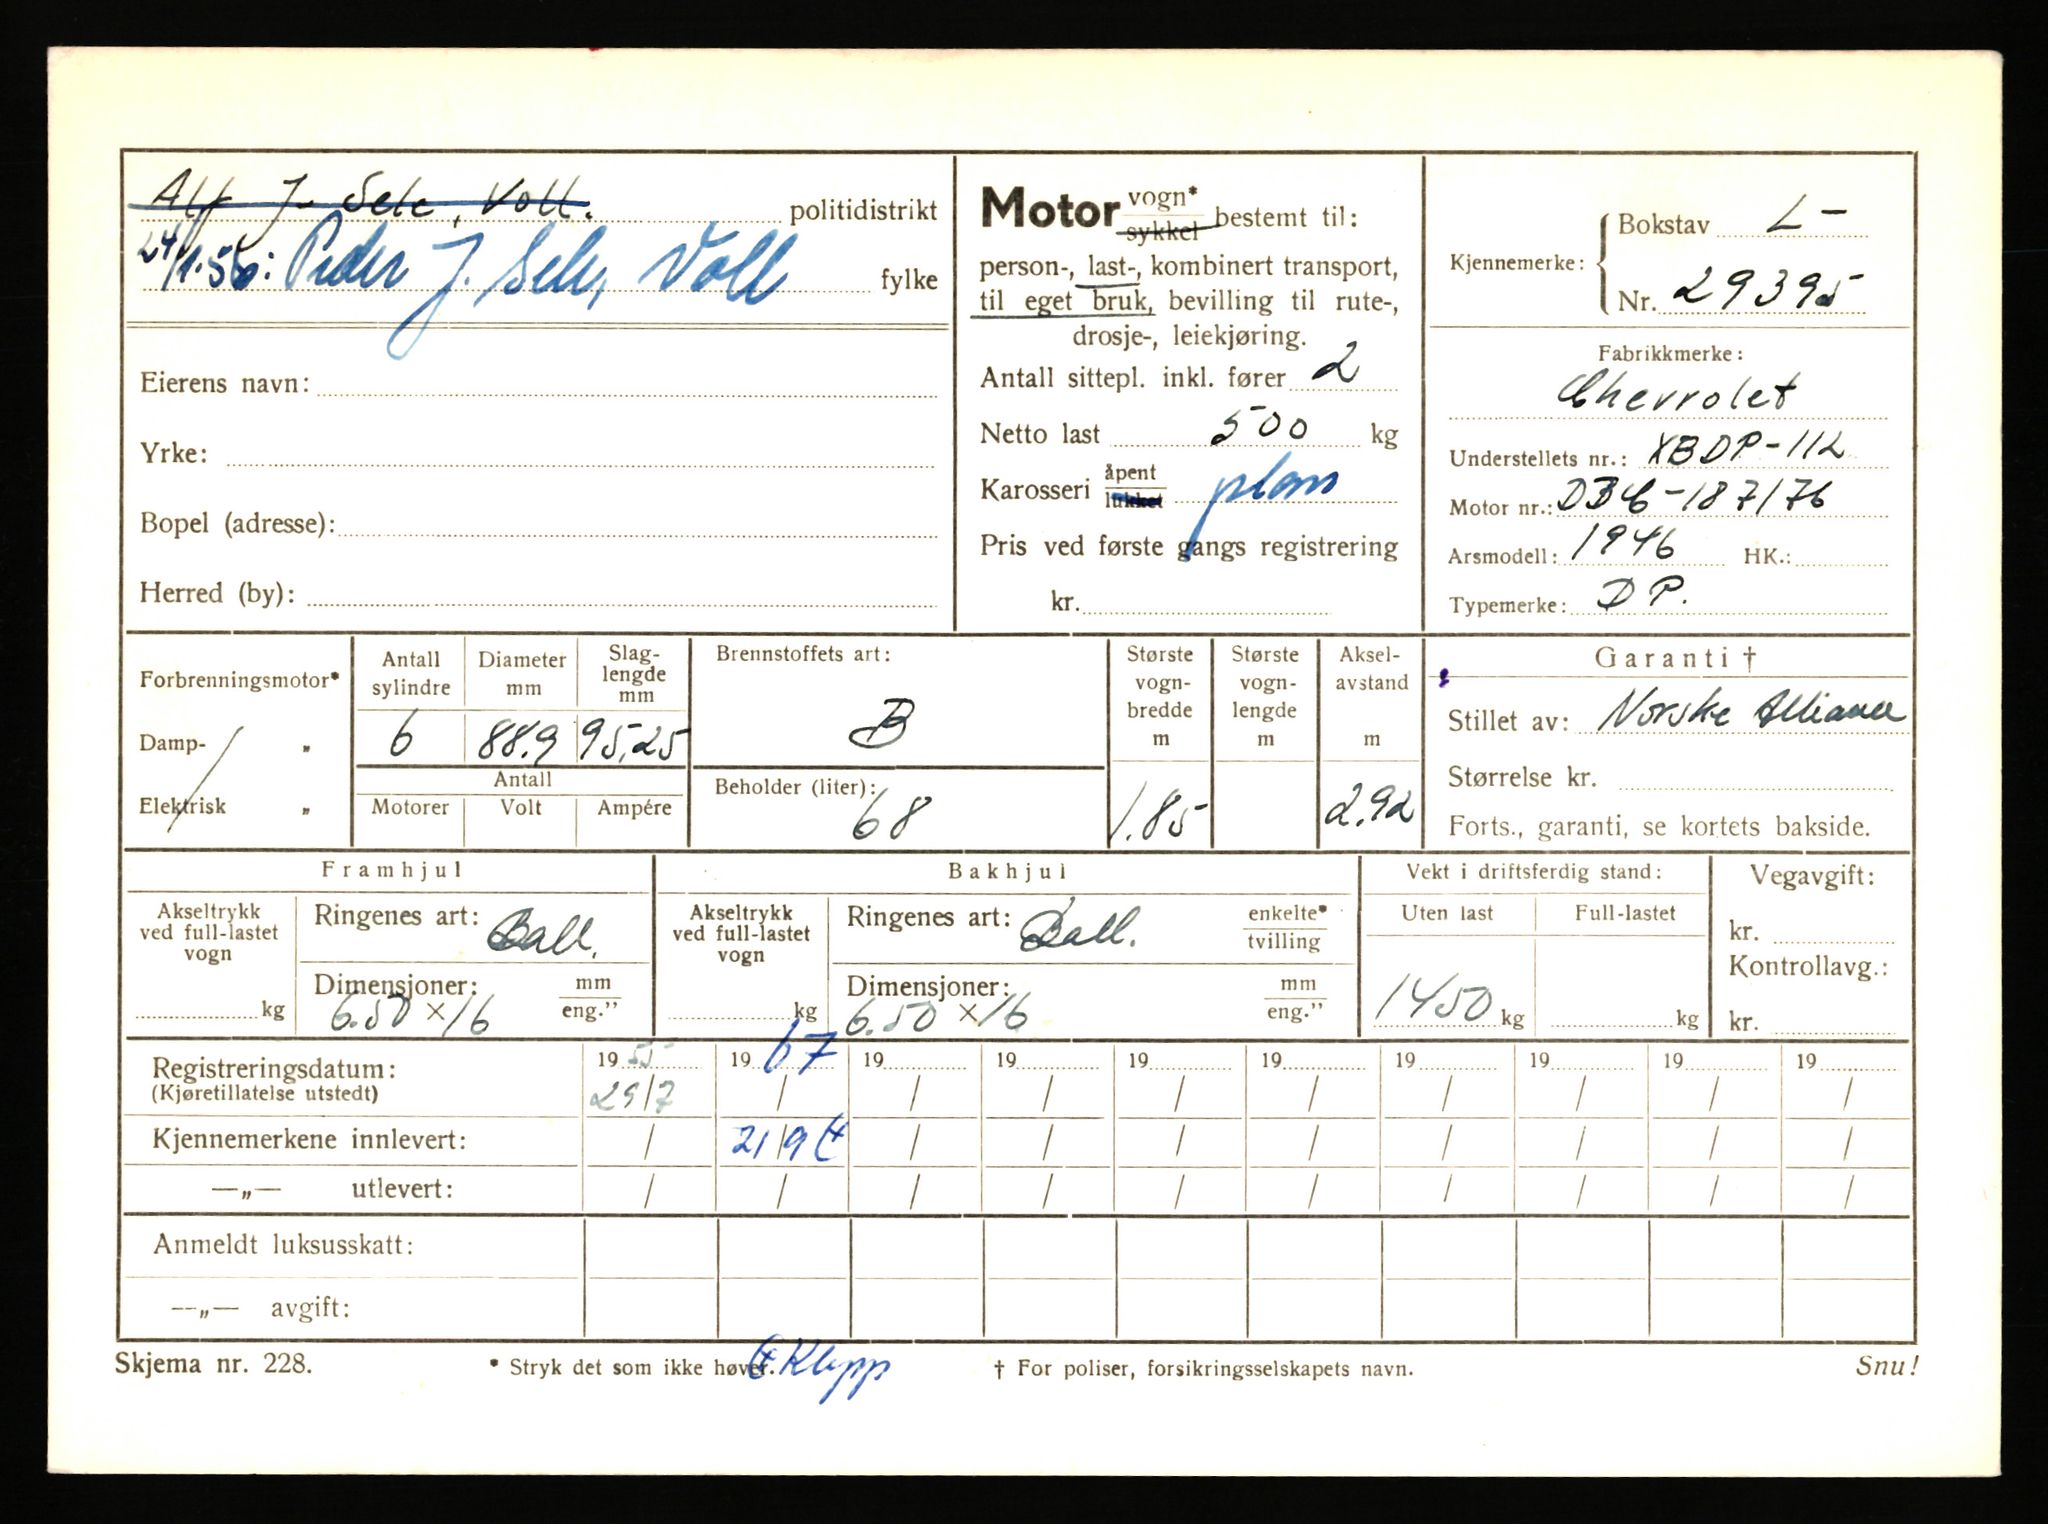 Alf J. Sele, Voll. politidistrikt
24/1.56: Peder J. Sele, Voll fylke
Eierens navn:
Yrke:
Bopel (adresse):
Herred (by):
Motor vogn* sykkel bestemt til:
person-, last-, kombinert transport,
til eget bruk, bevilling til rute-,
drosje-, leiekjøring.
Antall sittepl. inkl. fører 2
Netto last 500 kg
Karosseri åpent lukket plan
Pris ved første gangs registrering
kr.
Kjennemerke: Bokstav L-
Nr. 29395
Fabrikkmerke:
Chevrolet
Understellets nr.: XBDP-112
Motor nr.: DBC-187176
Arsmodell: 1946 HK.:
Typemerke: DP.
Forbrenningsmotor*
Damp- „
Elektrisk „
Antall sylindre Diameter mm Slaglengde mm
6 88.9 95,25
Antall
Motorer Volt Ampére
Brennstoffets art:
B
Beholder (liter):
68
Største vognbredde m
1.85
Største vognlengde m
Akselavstand m
2.92
Garanti †
Stillet av: Norske Alliance
Størrelse kr.
Forts., garanti, se kortets bakside.
Framhjul
Akseltrykk ved full-lastet vogn
kg
Ringenes art: Ball.
Dimensjoner: mm eng."
6.50 × 16
Bakhjul
Akseltrykk ved full-lastet vogn
kg
Ringenes art: Ball. enkelte* tvilling
Dimensjoner: mm eng."
6.50 × 16
Vekt i driftsferdig stand:
Uten last Full-lastet
1450 kg kg
Vegavgift:
kr.
Kontrollavg.:
kr.
Registreringsdatum: 19 55 19 67 19 19 19 19 19 19 19 19
(Kjøretillatelse utstedt) 29/7 / / / / / / / / /
Kjennemerkene innlevert: / 21/9 / / / / / / / /
—„— utlevert: / / / / / / / / / /
Anmeldt luksusskatt:
—„— avgift:
Skjema nr. 228. * Stryk det som ikke høver. Klepp † For poliser, forsikringsselskapets navn. Snu!